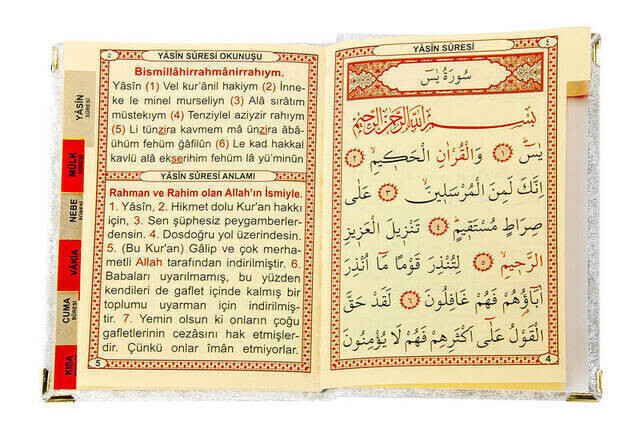 ٥
YÂSİN SÛRESİ OKUNUŞU
Bismillâhirrahmânirrahıym.
Yâsîn (1) Vel kur'ânil hakiym (2) İnne-
ke le minel murseliyn (3) Alâ sırâtım
müstekıym (4) Tenziylel aziyzir rahıym
(5) Li tünzira kavmem mâ ünzira âbâ-
ühüm fehüm ğâfilûn (6) Le kad hakkal
kavlü alâ ekserihim fehüm lâ yü'minûn
YÂSİN SÛRESİ ANLAMI
Rahman ve Rahim olan Allah'ın İsmiyle.
1. Yâsîn, 2. Hikmet dolu Kur'an hakkı
için, 3. Sen şüphesiz peygamberler-
densin. 4. Dosdoğru yol üzerindesin.
5. (Bu Kur'an) Gâlip ve çok merha-
metli Allah tarafından indirilmiştir. 6.
Babaları uyarılmamış, bu yüzden
kendileri de gaflet içinde kalmış bir
toplumu uyarman için indirilmiş-
tir. 7. Yemin olsun ki onların çoğu
gafletlerinin cezasını hak etmişler-
dir. Çünkü onlar îmân etmiyorlar.
5
YÂSİN SÛRESİ
MÜLK SÛRESİ
NEBE SÛRESİ
VÂKIA
CUMA SÛRESİ
KISA
YÂSİN SÛRESİ
٤
سُورَةُ يٰسٓ
بِسْمِ اللّٰهِ الرَّحْمٰنِ الرَّحِيمِ
يٰسٓ ﴿١﴾ وَالْقُرْاٰنِ الْحَكِيمِۙ ﴿٢﴾
اِنَّكَ لَمِنَ الْمُرْسَلِينَۙ ﴿٣﴾ عَلٰى
صِرَاطٍ مُسْتَقِيمٍۜ ﴿٤﴾ تَنْزِيلَ الْعَزِيزِ
الرَّحِيمِۙ ﴿٥﴾ لِتُنْذِرَ قَوْمًا مَٓا اُنْذِرَ
اٰبَٓاؤُهُمْ فَهُمْ غَافِلُونَ ﴿٦﴾ لَقَدْ حَقَّ
الْقَوْلُ عَلٰٓى اَكْثَرِهِمْ فَهُمْ لَا يُؤْمِنُونَ
4